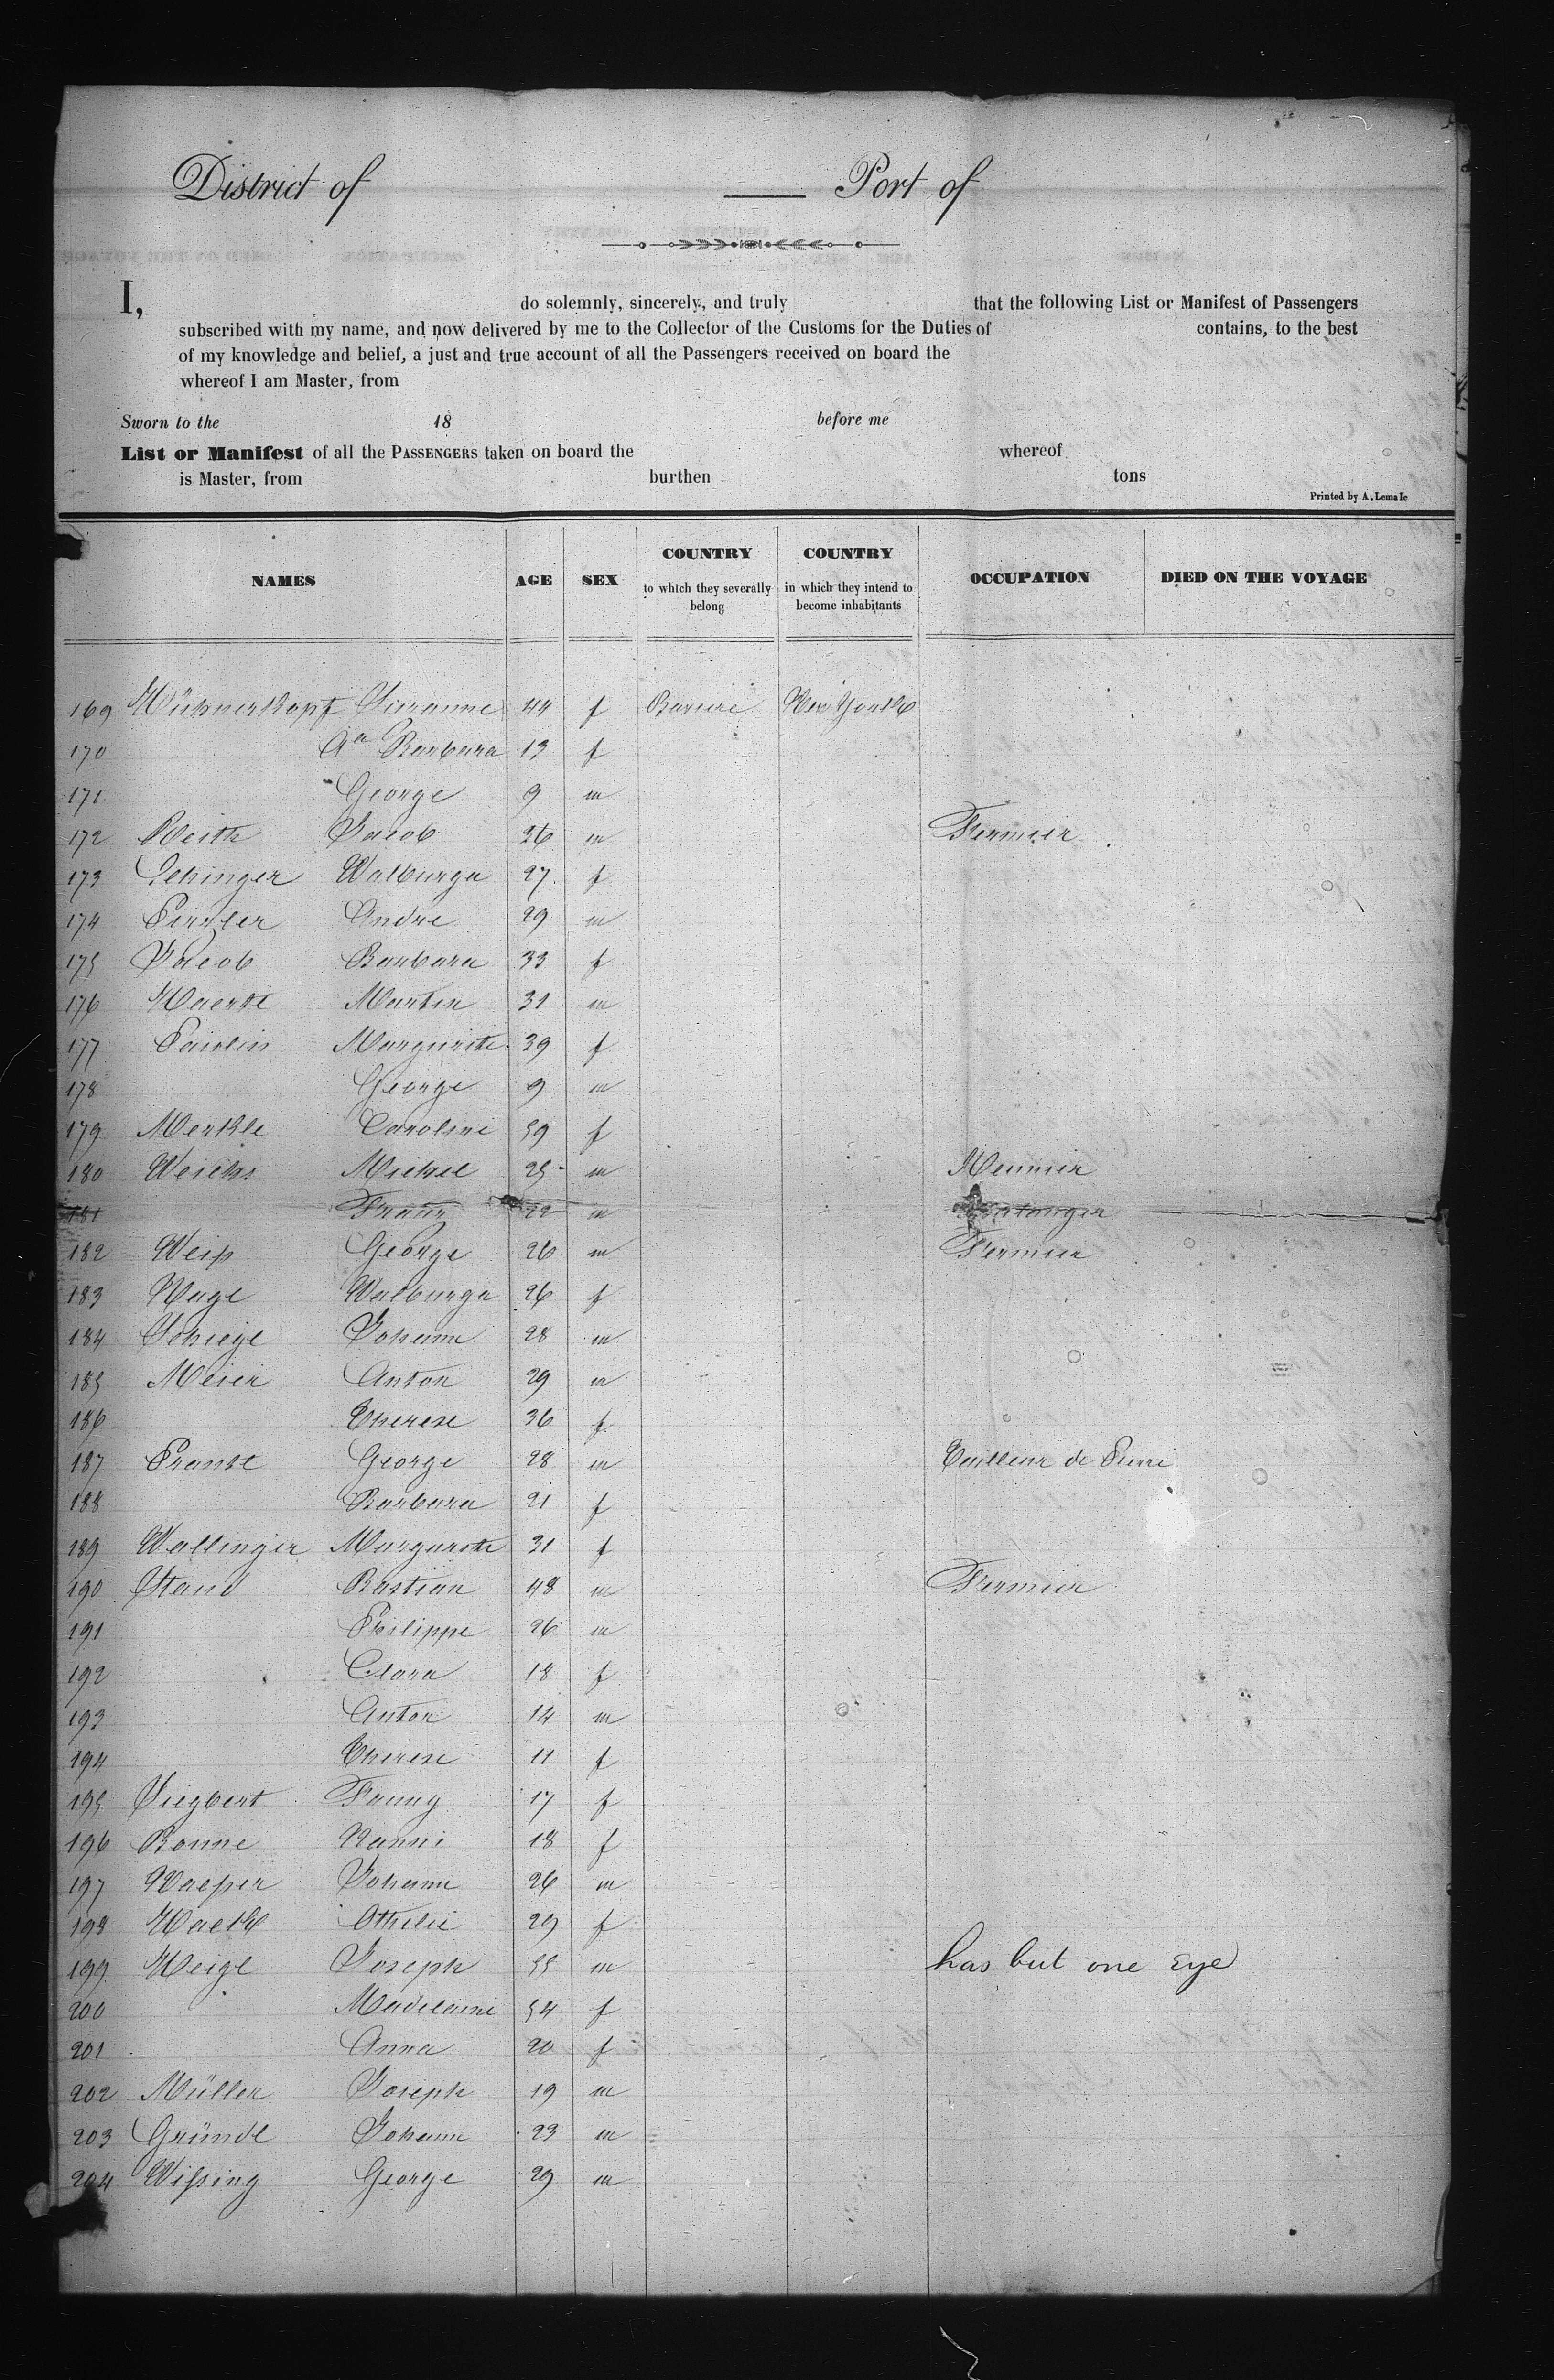 District of Port of
I, do solemnly, sincerely, and truly that the following List or Manifest of Passengers
subscribed with my name, and now delivered by me to the Collector of the Customs for the Duties of contains, to the best
of my knowledge and belief, a just and true account of all the Passengers received on board the
whereof I am Master, from
Sworn to the 18 before me
List or Manifest of all the PASSENGERS taken on board the whereof
is Master, from burthen tons
Printed by A. Lemale
NAMES AGE SEX COUNTRY to which they severally belong COUNTRY in which they intend to become inhabitants OCCUPATION DIED ON THE VOYAGE
169 Hühnerkopf Suzanne 44 f Baviere New York
170 Aa Barbara 13 f
171 George 9 m
172 Jacob 26 m Fermier
173 Walburga 27 f
174 André 29 m
175 Jacob Barbara 33 f
176 Martin 31 m
177 Margurite 39 f
178 George 9 m
179 Merkle Caroline 59 f
180 Weichs Michel 25 m Meunier
181 Franz 22 m
182 Weiß George 26 m Fermier
183 Walburga 26 f
184 Johann 28 m
185 Meier Anton 29 m
186 Therese 36 f
187 George 28 m Tailleur de Pierre
188 Barbara 21 f
189 Wallinger Margarete 31 f
190 Staud Bastian 48 m Fermier
191 Philippe 26 m
192 Clara 18 f
193 Anton 14 m
194 Therese 11 f
195 Siegbert Fanny 17 f
196 Bonne Nanni 18 f
197 Johann 26 m
198 Othilie 29 f
199 Heigl Joseph 55 m has but one Eye
200 Madelaine 54 f
201 Anna 20 f
202 Müller Joseph 19 m
203 Gründl Johann 23 m
204 Wißing George 29 m